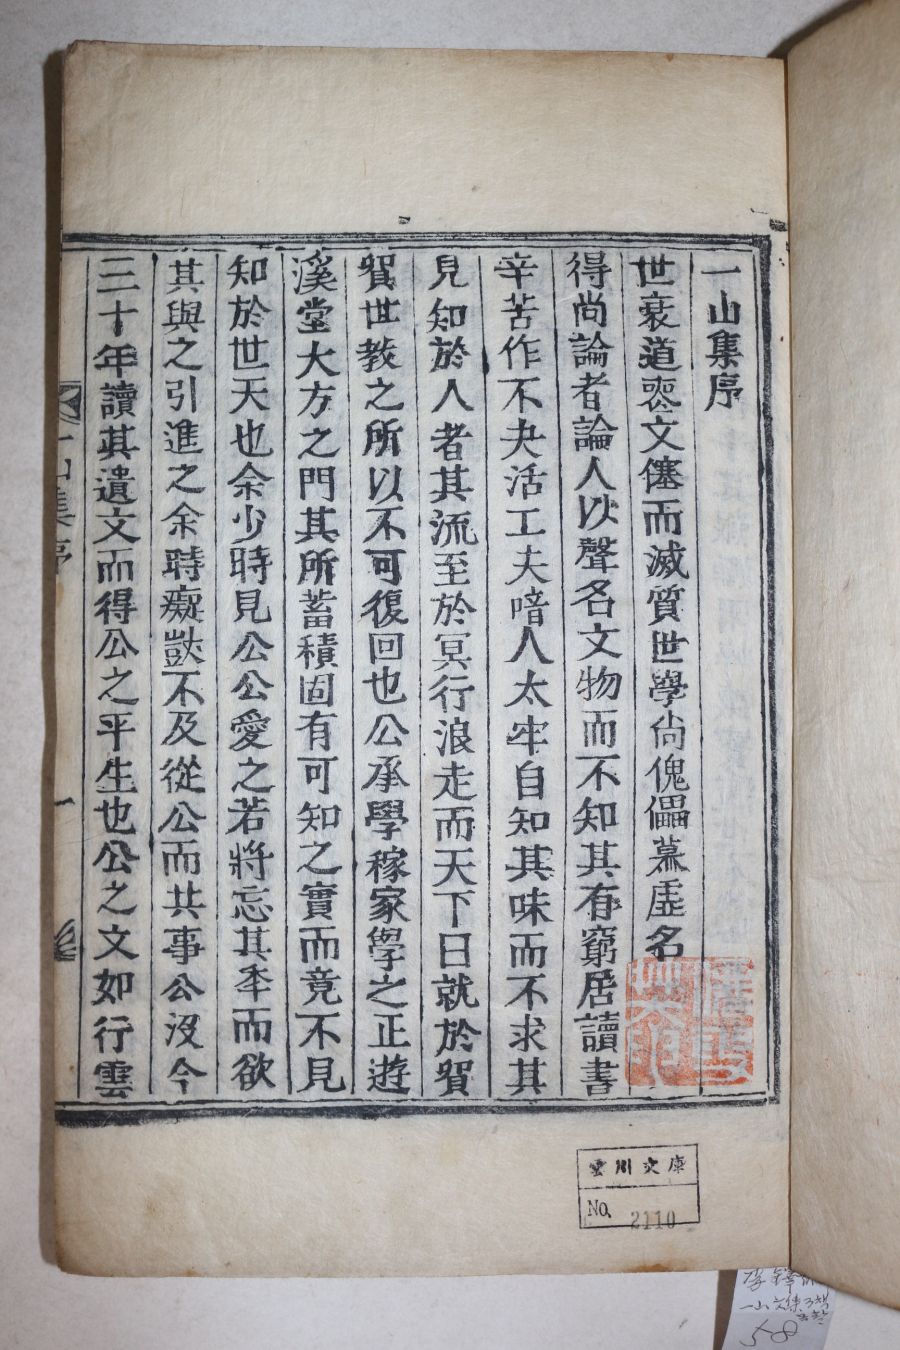 一山集序
世衰道喪文僿而滅質世學尙傀儡慕虛名
得尚論者論人以聲名文物而不知其有窮居讀書
辛苦作不夬活工夫喑人太牢自知其味而不求其
見知於人者其流至於冥行浪走而天下日就於貿
貿世教之所以不可復回也公承學稼家學之正遊
溪堂大方之門其所蓄積固有可知之實而竟不見
知於世天也余少時見公公愛之若將忘其年而欲
其與之引進之余時癡獃不及從公而共事公沒今
三十年讀其遺文而得公之平生也公之文如行雲
一山集序
一
雲川文庫
No. 2110
李鐸
一山文集 3책
58